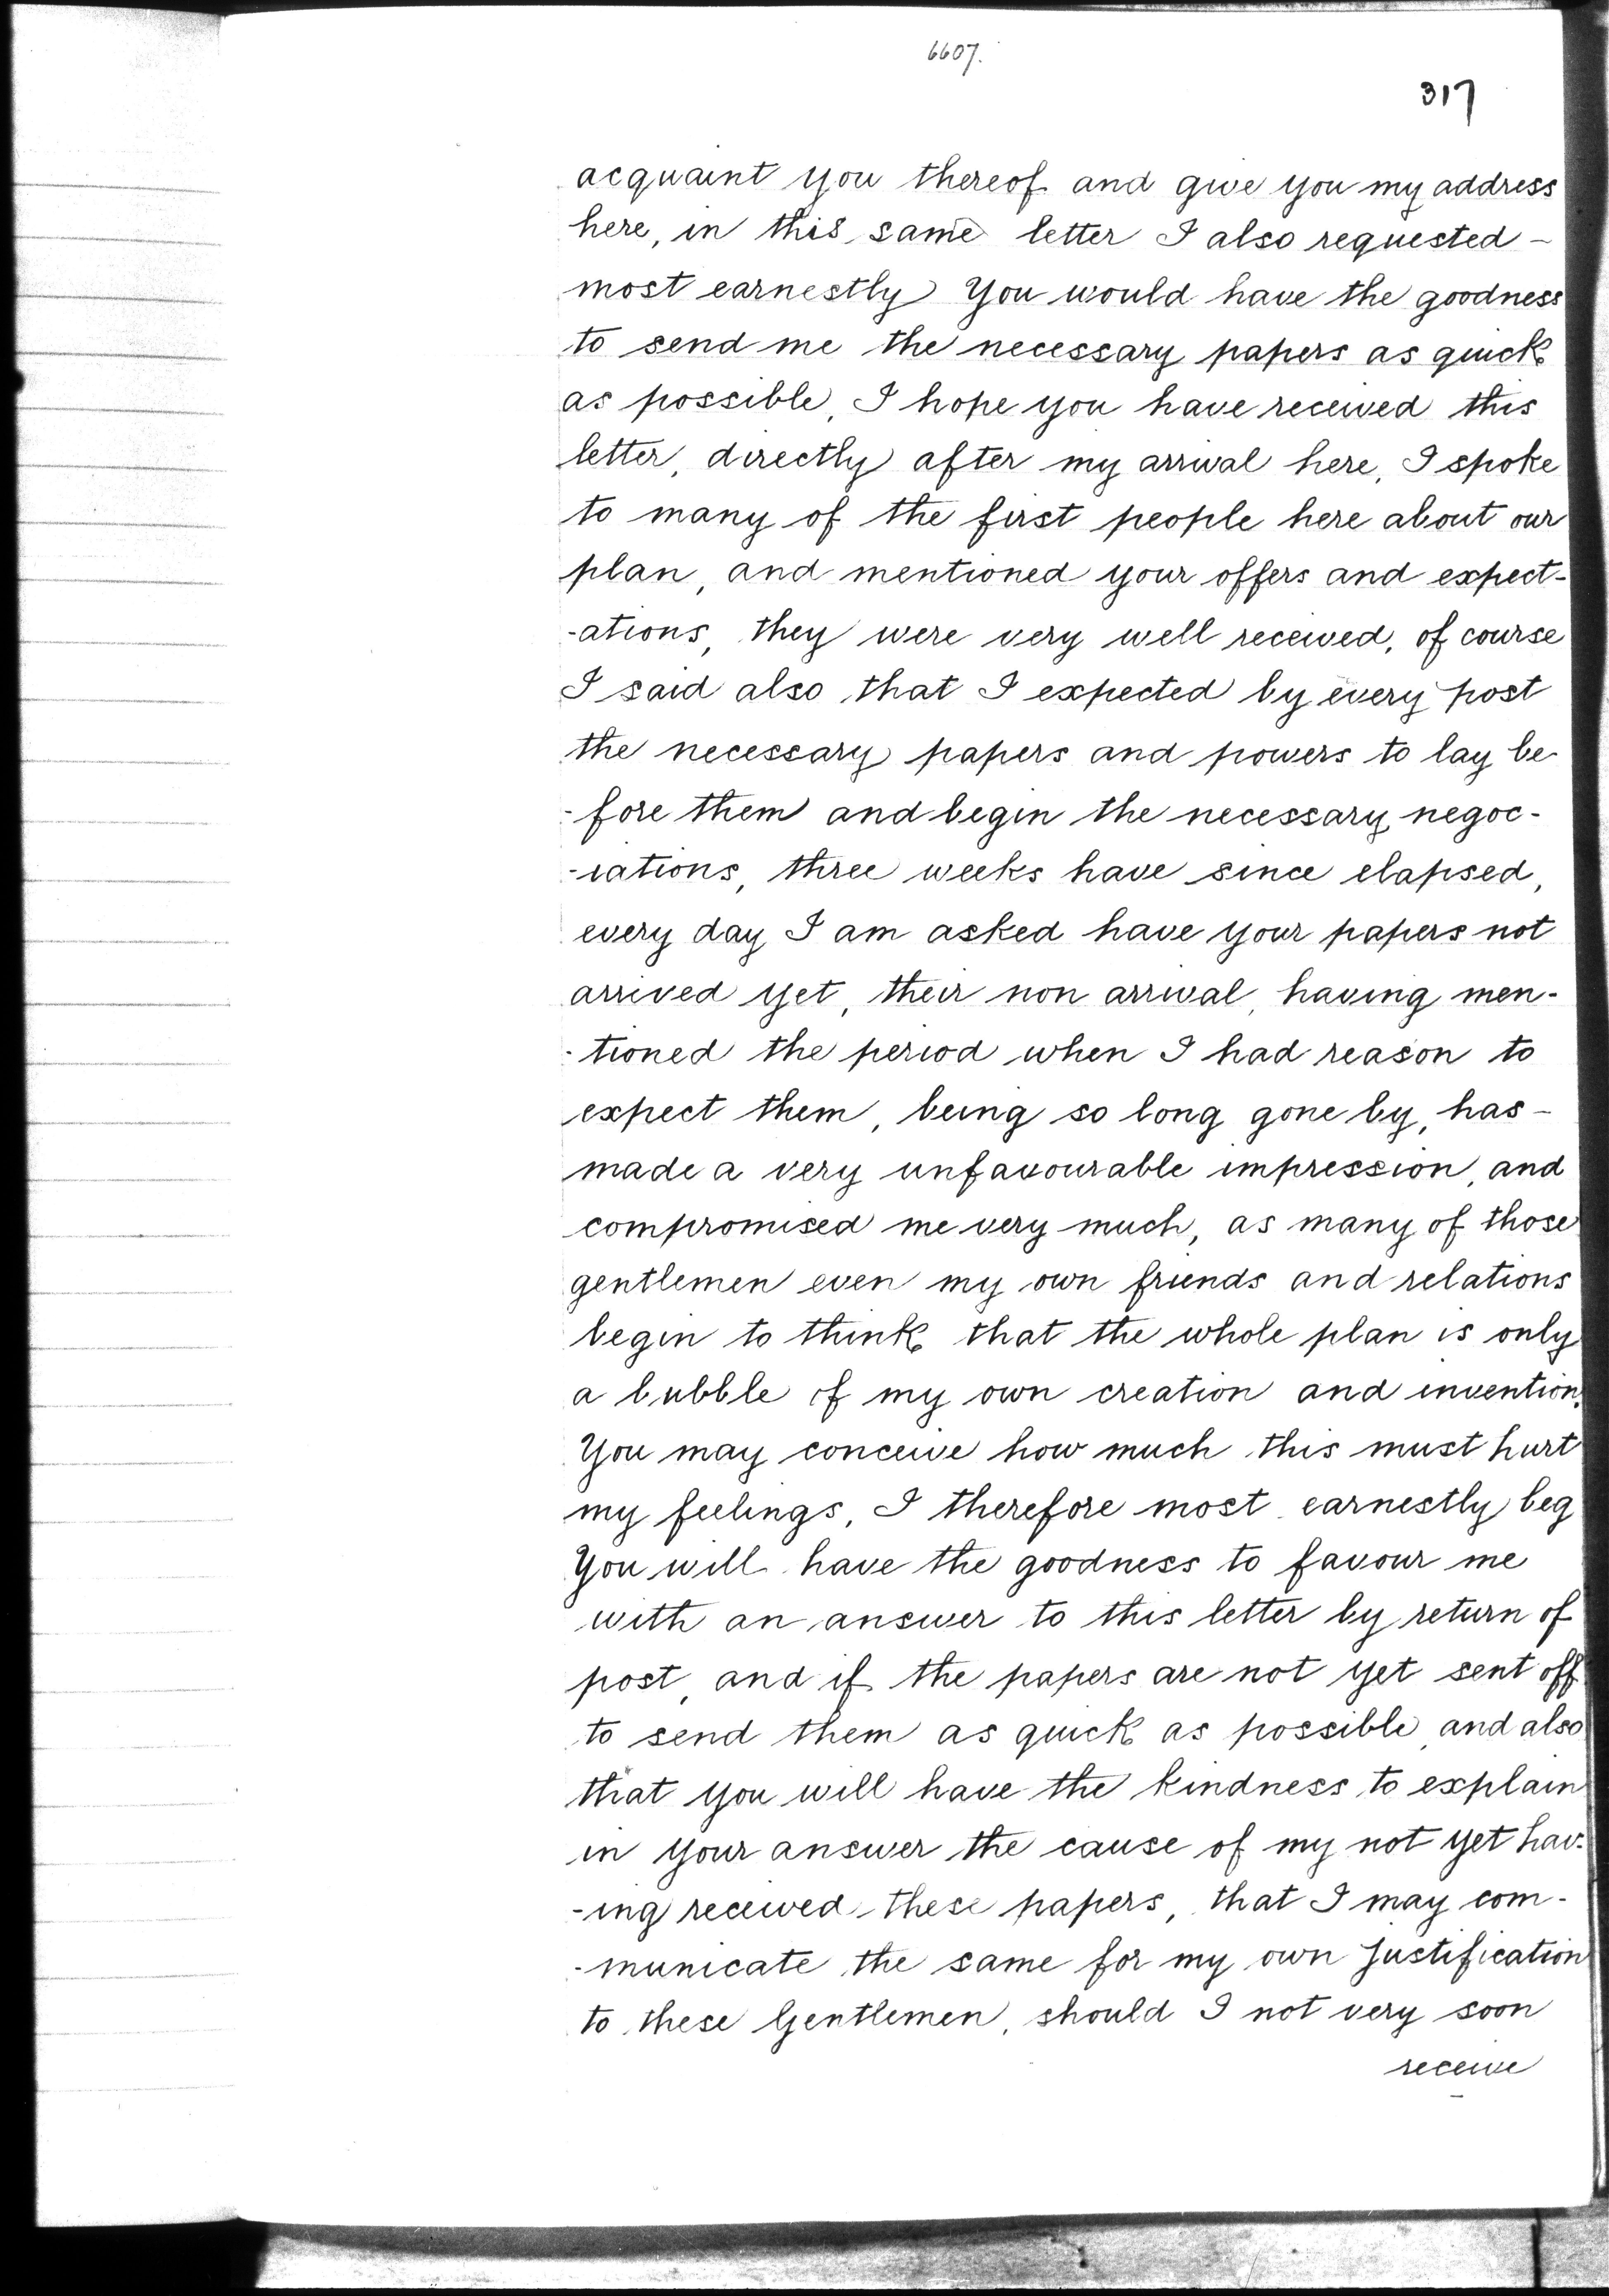 6607.
317
acquaint you thereof and give you my address
here, in this same letter I also requested -
most earnestly You would have the goodness
to send me the necessary papers as quick
as possible, I hope you have received this
letter, directly after my arrival here, I spoke
to many of the first people here about our
plan, and mentioned your offers and expect-
-ations, they were very well received, of course
I said also that I expected by every post
the necessary papers and powers to lay be
-fore them and begin the necessary negoc-
-iations, three weeks have since elapsed,
every day I am asked have your papers not
arrived yet, their non arrival, having men-
-tioned the period when I had reason to
expect them, being so long gone by, has -
made a very unfavourable impression, and
compromised me very much, as many of those
gentlemen even my own friends and relations
begin to think that the whole plan is only
a bubble of my own creation and invention.
You may conceive how much this must hurt
my feelings, I therefore most earnestly beg
You will have the goodness to favour me
with an answer to this letter by return of
post, and if the papers are not yet sent off
to send them as quick as possible, and also
that you will have the kindness to explain
in your answer the cause of my not yet hav-
-ing received these papers, that I may com-
-municate the same for my own Justification
to these Gentlemen, should I not very soon
receive